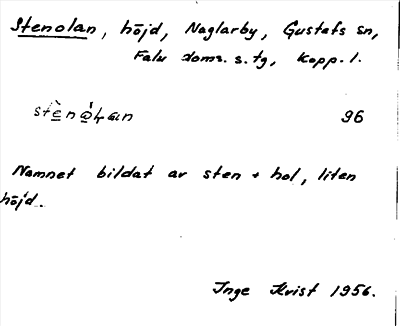 Stenolan, höjd, Naglarby, Gustafs sn,
Falu doms. s. tg, Kopp. l.
96
Namnet bildat av sten + hol, liten
höjd.
Inge Kvist 1956.